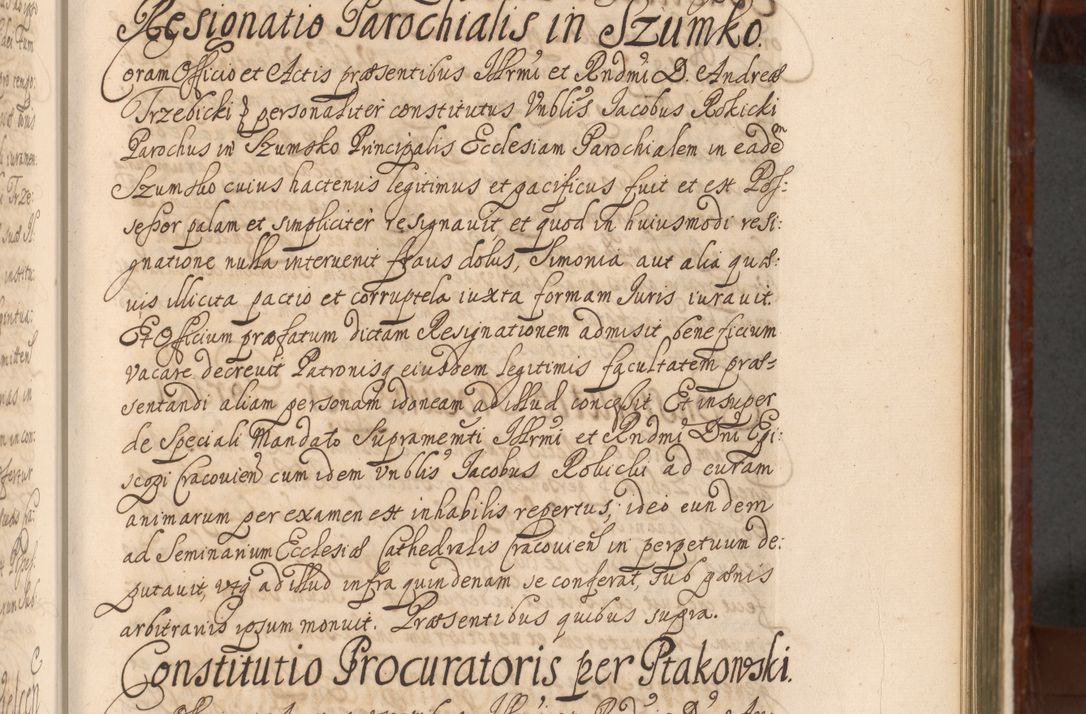 Resignatio Parochialis in Szumsko.
Coram Officio et Actis præsentibus Illrmi et Rndmi D. Andreæ
Trzebicki personaliter constitutus Vnblis Jacobus Rokicki
Parochus in Szumsko Principalis Ecclesiam Parochialem in eadem
Szumsko cuius hactenus legitimus et pacificus fuit et est Pos:
sessor palam et simpliciter resignauit et quod in huiusmodi resi:
gnatione nulla interuenit fraus dolus, Simonia aut alia quæ:
uis illicita pactio et corruptela iuxta formam Iuris iurauit.
Et Officium præfatum dictam Resignationem admisit beneficium
vacare decreuit Patronisq eiusdem legitimis facultatem præ=
sentandi aliam personam idoneam ad illud concessit Et insuper
de speciali Mandato Supramemti Illrmi et Rndmi Dni Epi:
scopi Cracouien cum idem Vnblis Jacobus Rokicki ad curam
animarum per examen est inhabilis repertus, ideo eundem
ad Seminarium Ecclesiæ Cathedralis Cracouien in perpetuum de:
putauit, vtq ad illud infra quindenam se conferat, sub pænis
arbitrariis ipsum monuit. Præsentibus quibus supra.
Constitutio Procuratoris per Ptakowski.